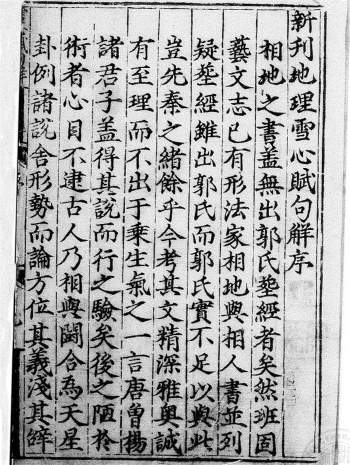 新刊地理雪心賦句解序
相地之書盖無出郭氏塟經者矣然班固
藝文志已有形法家相地與相人書並列
疑塟經雖出郭氏而郭氏實不足以與此
豈先秦之緒餘乎今考其文精深雅奥誠
有至理而不出于乘生氣之一言唐曾揚
諸君子盖得其說而行之驗矣後之陋於
術者心目不逮古人乃相與闘合為天星
卦例諸說舎形勢而論方位其義淺其辝